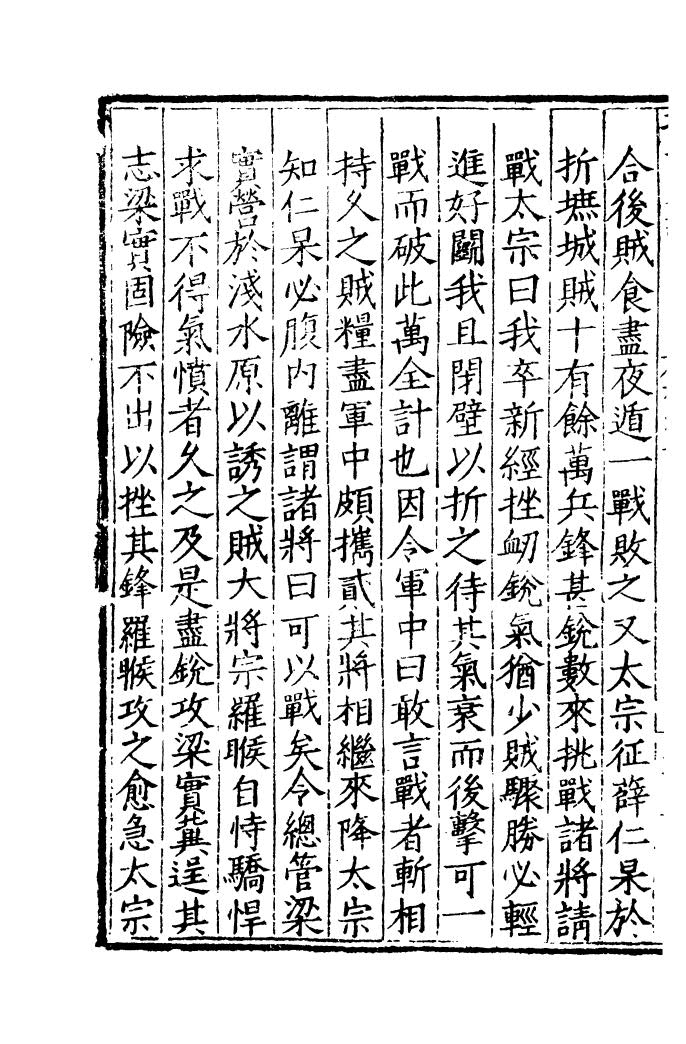 合後賊食盡夜遁一戰敗之又太宗征薛仁杲於
折墌城賊十有餘萬兵鋒甚銳數來挑戰諸將請
戰太宗曰我卒新經挫衂銳氣猶少賊驟勝必輕
進好鬭我且閉壁以折之待其氣衰而後擊可一
戰而破此萬全計也因令軍中曰敢言戰者斬相
持久之賊糧盡軍中頗攜貳其將相繼來降太宗
知仁杲必腹内離謂諸將曰可以戰矣令總管梁
實營於淺水原以誘之賊大將宗羅睺自恃驕悍
求戰不得氣憤者久之及是盡銳攻梁實冀逞其
志梁實固險不出以挫其鋒羅睺攻之愈急太宗